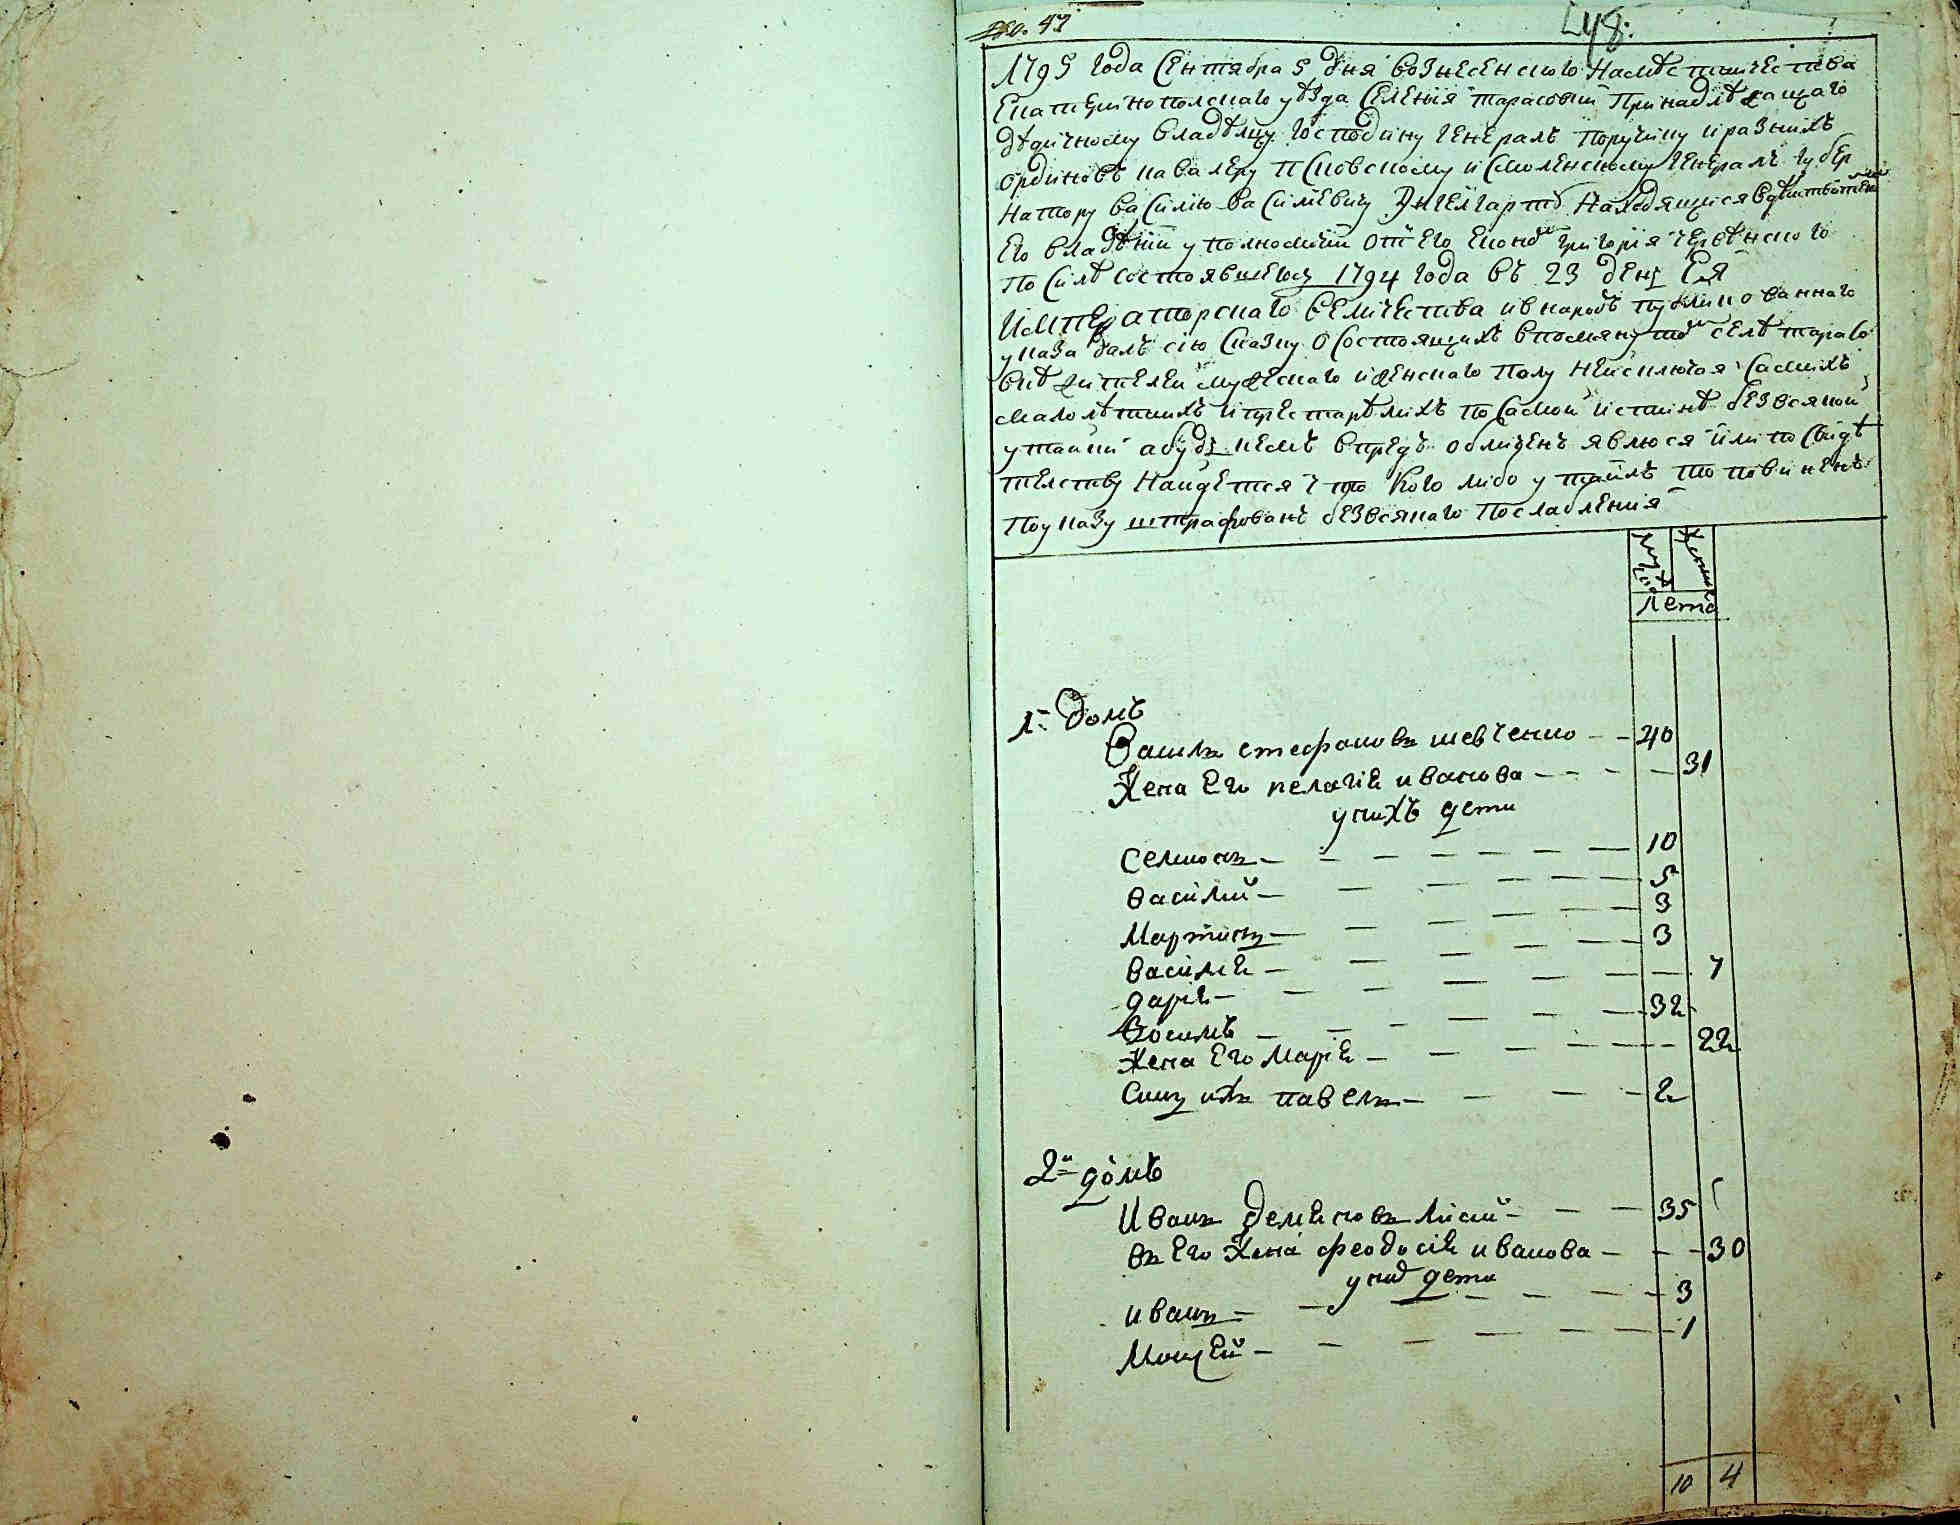 No. 47
48.
1795 года Сентября 5 дня вознесенского Наместничества
Екатеринополскаго уѣзда Селения тарасовки Принадлѣжащаго
дѣдичному владѣлцу господину генералъ поручику и разнихъ
ординовъ кавалеру псковскому и смоленскому генералъ губер
натору василю василевичу Энгелгарту Находящися в
его владѣнии уполномочий от его економ григория
по силѣ состоявшегось 1794 года въ 23 день Ея
Императорскаго величества и в народъ публикованнаго
указа далъ сию сказку о состоящихъ в помянутой селѣ тарасо
вкѣ жителей мужескаго и женскаго полу неисключая самихъ
малолѣтнихъ и престарѣлихъ по самой истинѣ безвсякой
утайки а буде кемъ впредъ обличенъ явлюся или по свидѣ
телству Найдется что кого либо утаилъ то повиненъ
по указу штрафованъ безвсякаго послабления
муж женск
Лета
1й домъ
Василь стефановъ шевченко 40
Жена Его пелагіе иванова 31
у нихъ дети
семионъ 10
василий 5
Мартинъ 3
василий 3
дарие 7
жена его Марие 32 22
Синъ ихъ павелъ 2
2й домъ
Иванъ Деменовъ лисий 35
въ его жена феодосие иванова 30
у них дети
иванъ 3
Мокей 1
10 4